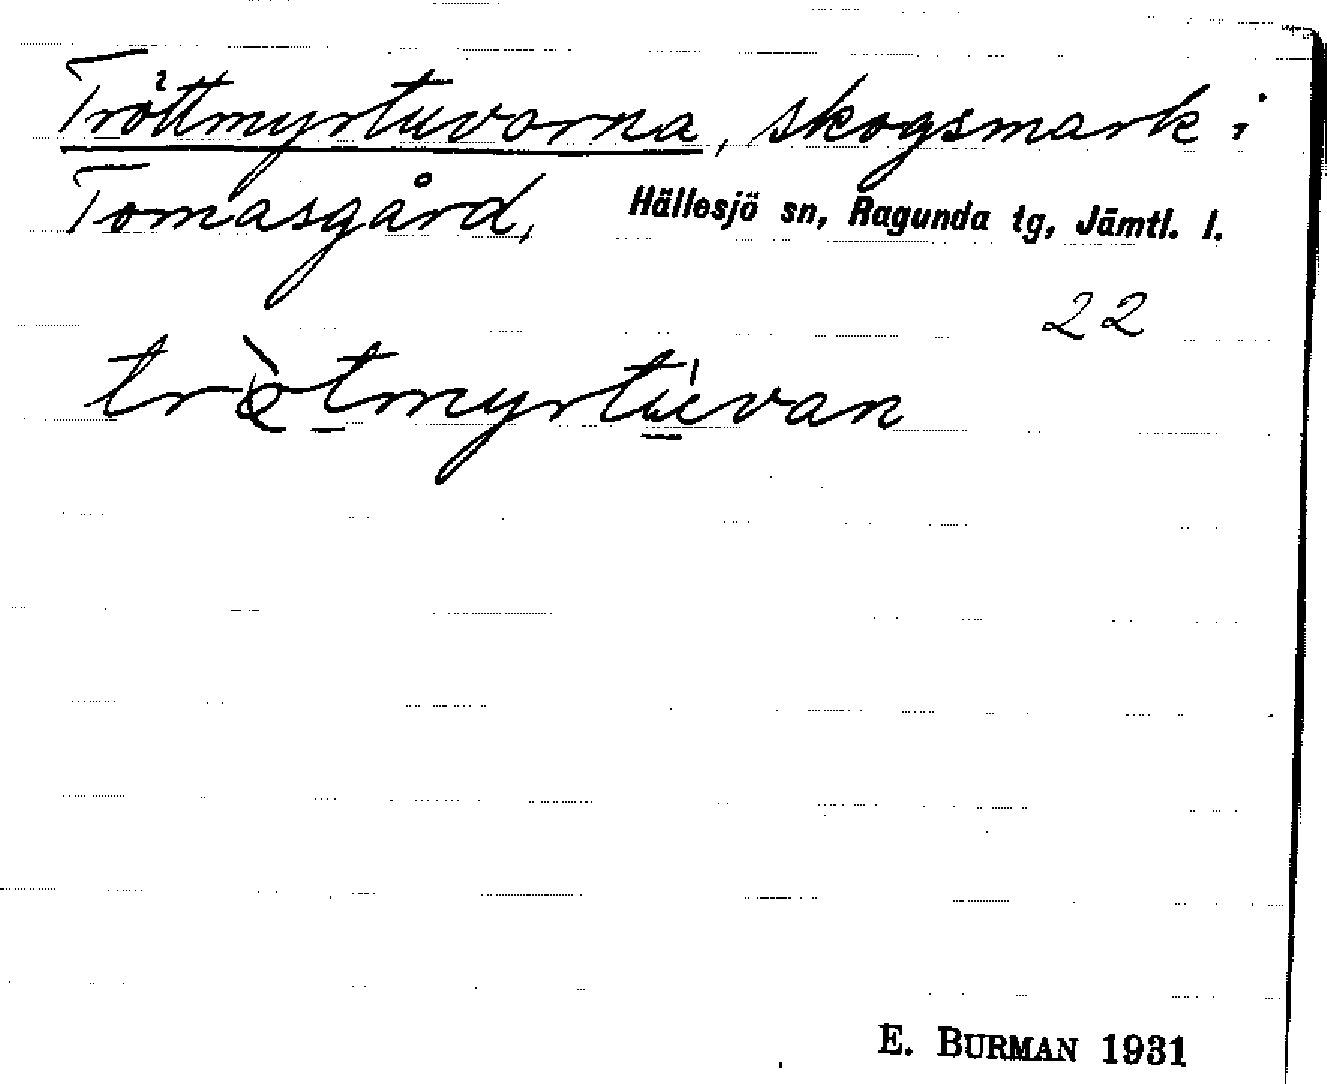 Tröttmyrtuvorna, skogsmark i
Tomasgård, Hällesjö sn, Ragunda tg, Jämtl. l.
22
trò̭tmyrtúvan
E. BURMAN 1931